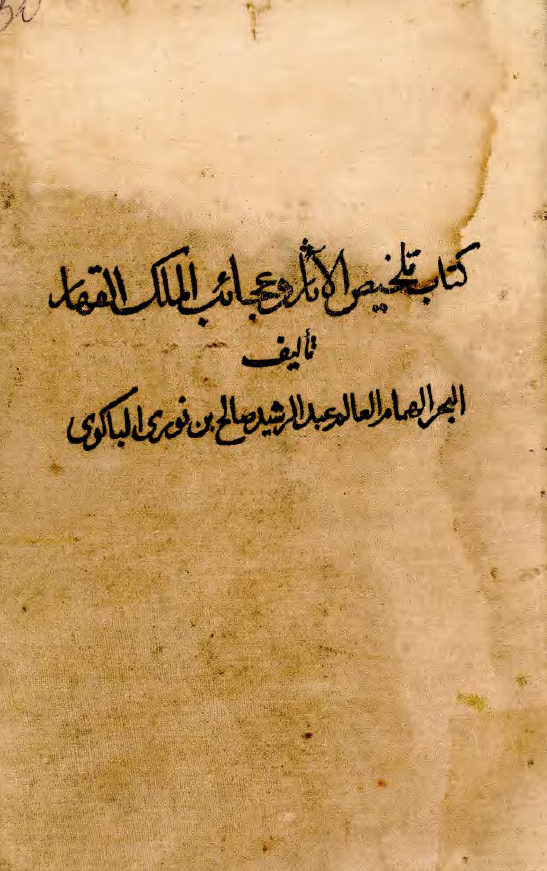 كتاب تلخيص الآثار وعجائب الملك القهار
تأليف
البحر الهمام العالم عبد الرشيد صالح بن نوري الباكوي